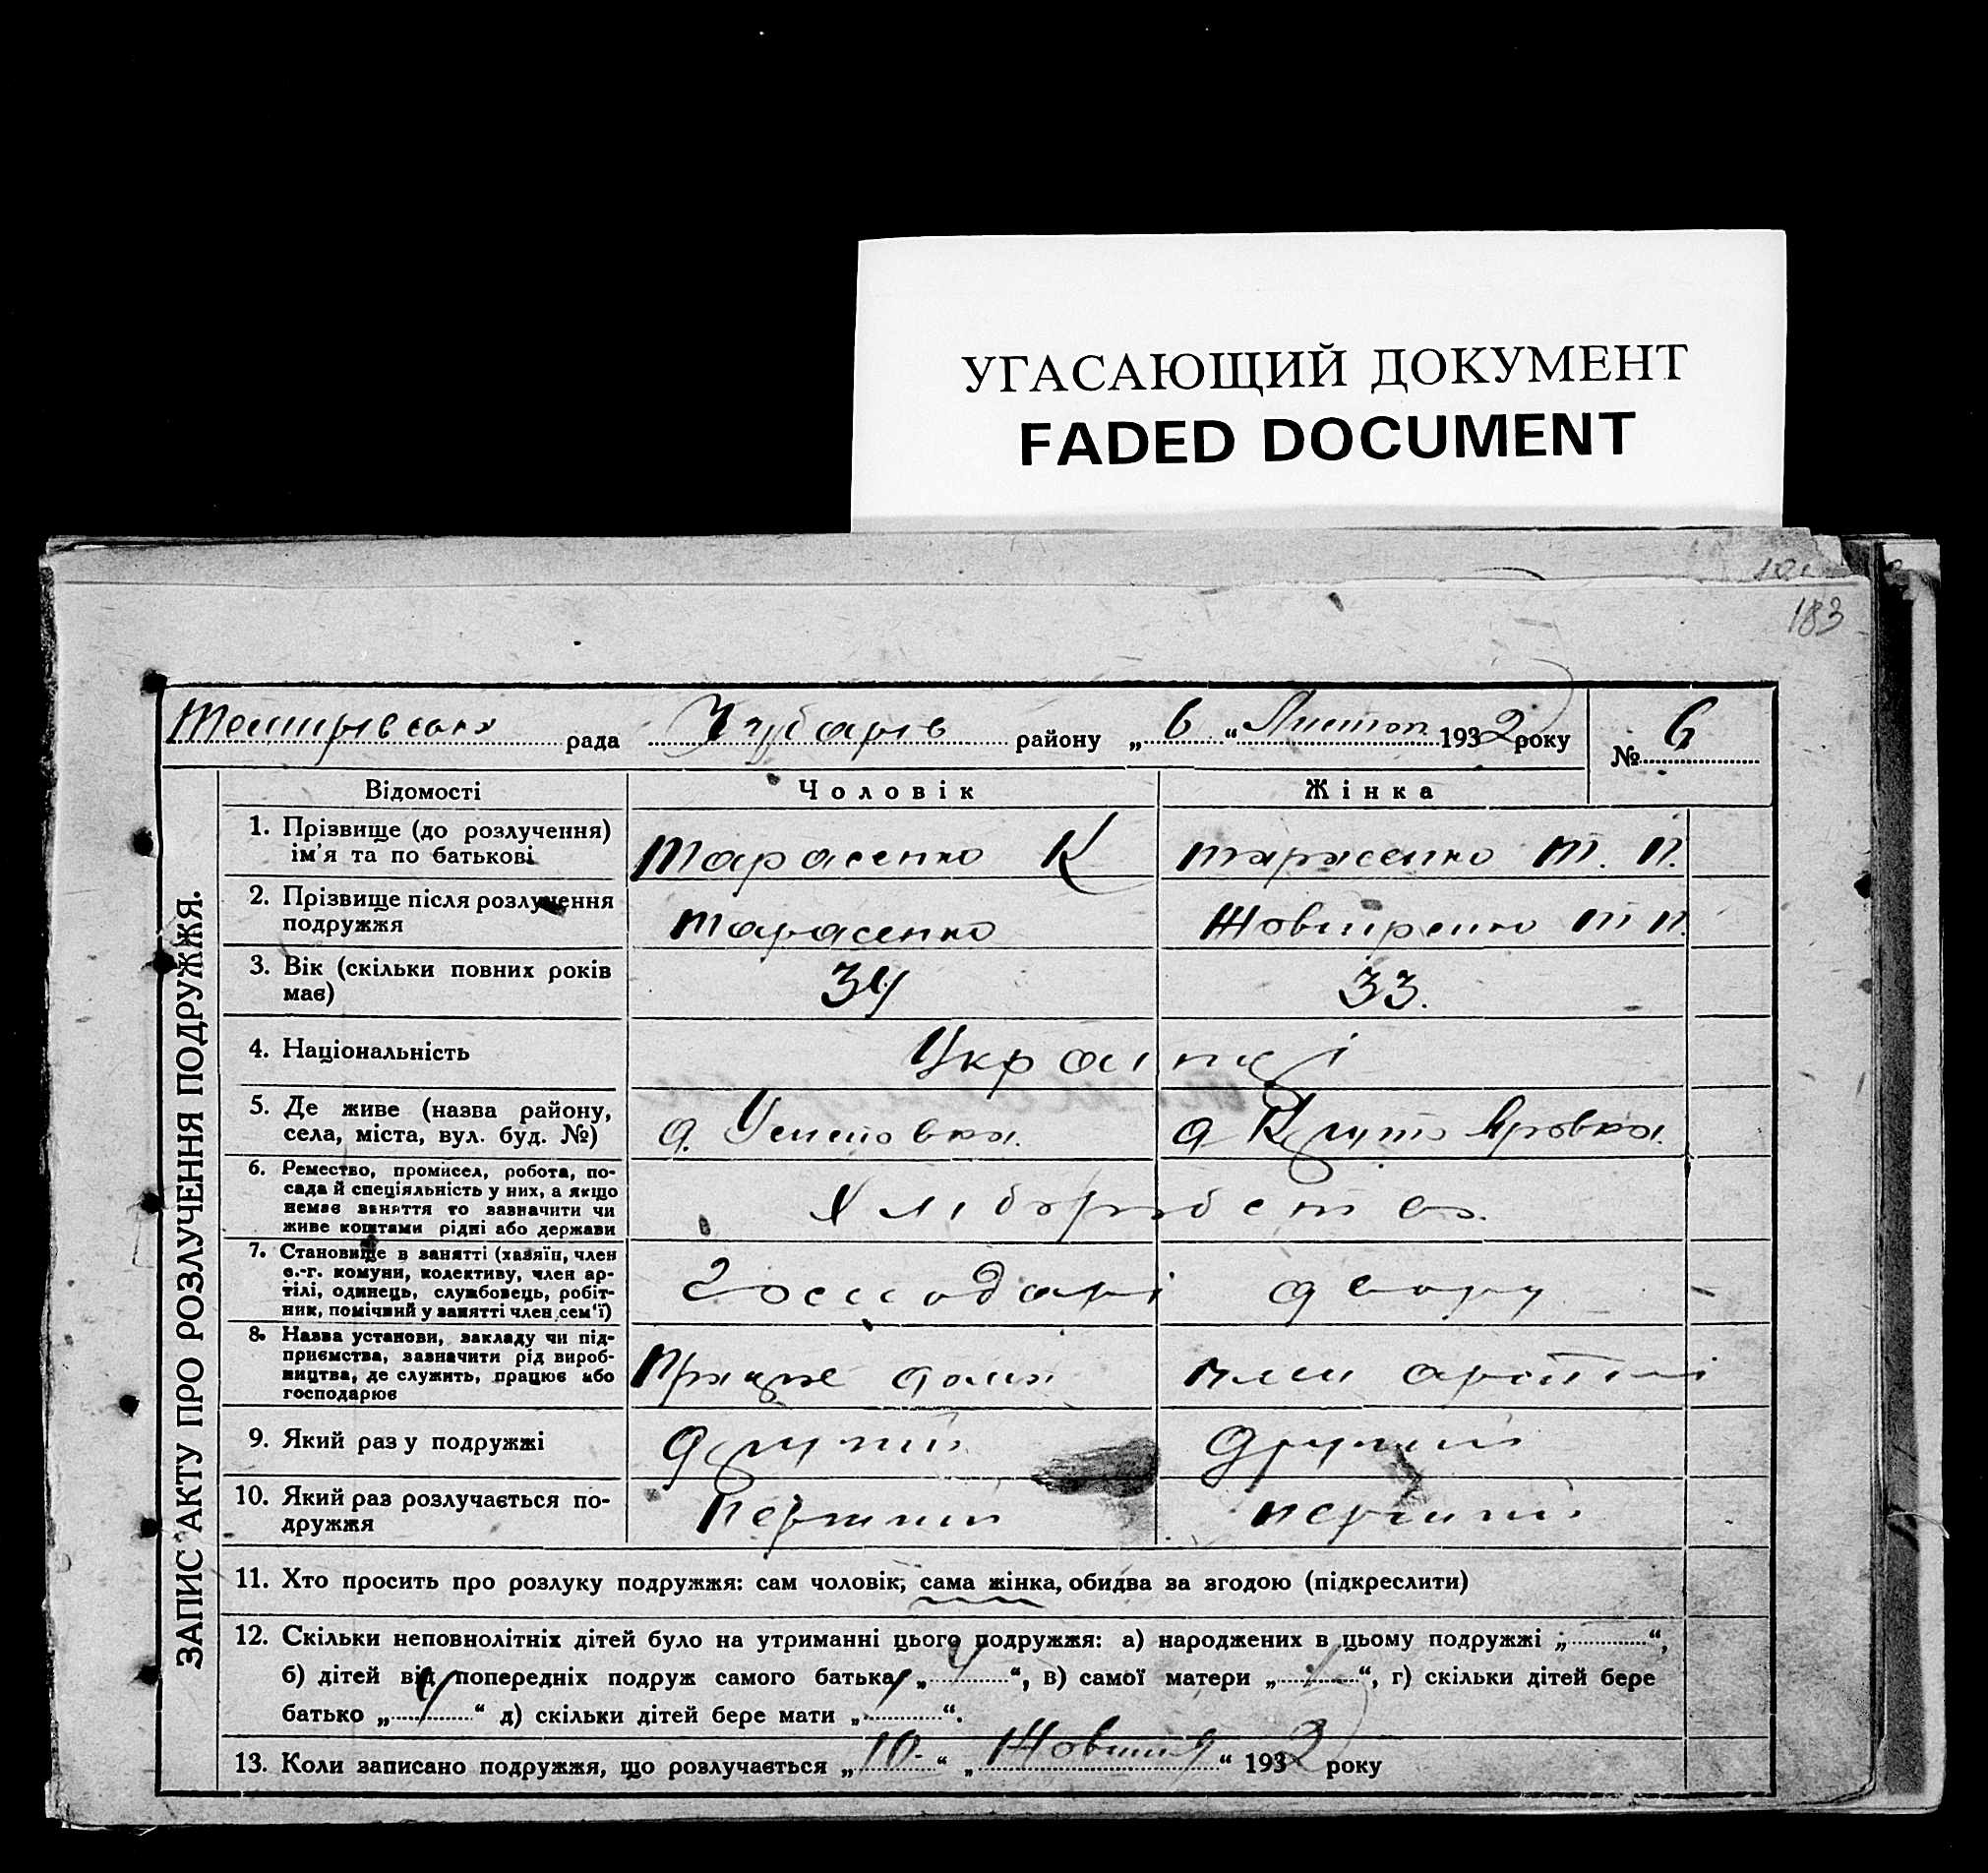 УГАСАЮЩИЙ ДОКУМЕНТ
FADED DOCUMENT
183
рада району „ 6 “ Листоп 1932 року № 6
ЗАПИС АКТУ ПРО РОЗЛУЧЕННЯ ПОДРУЖЖЯ.
Відомості Чоловік Жінка
1. Прізвище (до розлучення)
ім'я та по батькові
Тарасенко К Тарасенко Т. П.
2. Прізвище після розлучення
подружжя
Тарасенко Т П.
3. Вік (скільки повних років
має)
34 33.
4. Національність
Українці
5. Де живе (назва району,
села, міста, вул. буд. №)
6. Ремество, промисел, робота, по-
сада й спеціяльність у них, а якщо
немає заняття то зазначити чи
живе коштами рідні або держави
Хліборобство.
7. Становище в занятті (хазяїн, член
с.-г. комуни, колективу, член ар-
тілі, одинець, службовець, робіт-
ник, помічний у занятті член сем'ї)
двору
8. Назва установи, закладу чи під-
приємства, зазначити рід вироб-
ництва, де служить, працює або
господарює
Працює дома член артілі
9. Який раз у подружжі
другий другий
10. Який раз розлучається по-
дружжя
перший перший
11. Хто просить про розлуку подружжя: сам чоловік, сама жінка, обидва за згодою (підкреслити)
12. Скільки неповнолітніх дітей було на утриманні цього подружжя: а) народжених в цьому подружжі „ “,
б) дітей від попередніх подруж самого батька „ “, в) самої матери „ “, г) скільки дітей бере
батько „ “ д) скільки дітей бере мати „ “.
13. Коли записано подружжя, що розлучається „ 10 “ „ Жовтня “ 1932 року